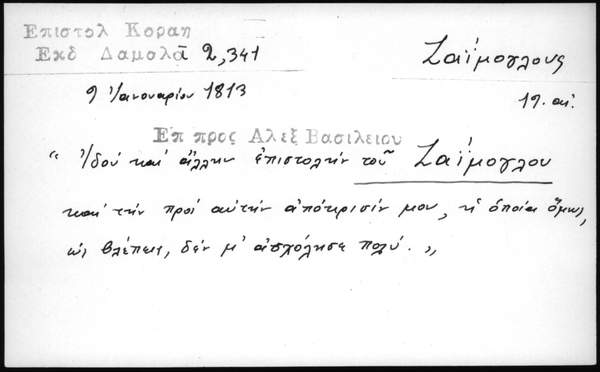 Επιστολ Κοραη
Εκδ Δαμαλᾶ 2,341
Ζαΐμογλους
9 Ἰανουαρίου 1813
19. αἰ.
Επ προς Αλεξ Βασιλειου
“ Ἰδού καί ἄλλην ἐπιστολήν τοῦ Ζαΐμογλου
καί τήν πρός αὐτήν ἀπόκρισίν μου, ἡ ὁποία ὅμως,
ὡς βλέπεις, δέν μ' ἀσχόλησε πολύ. „